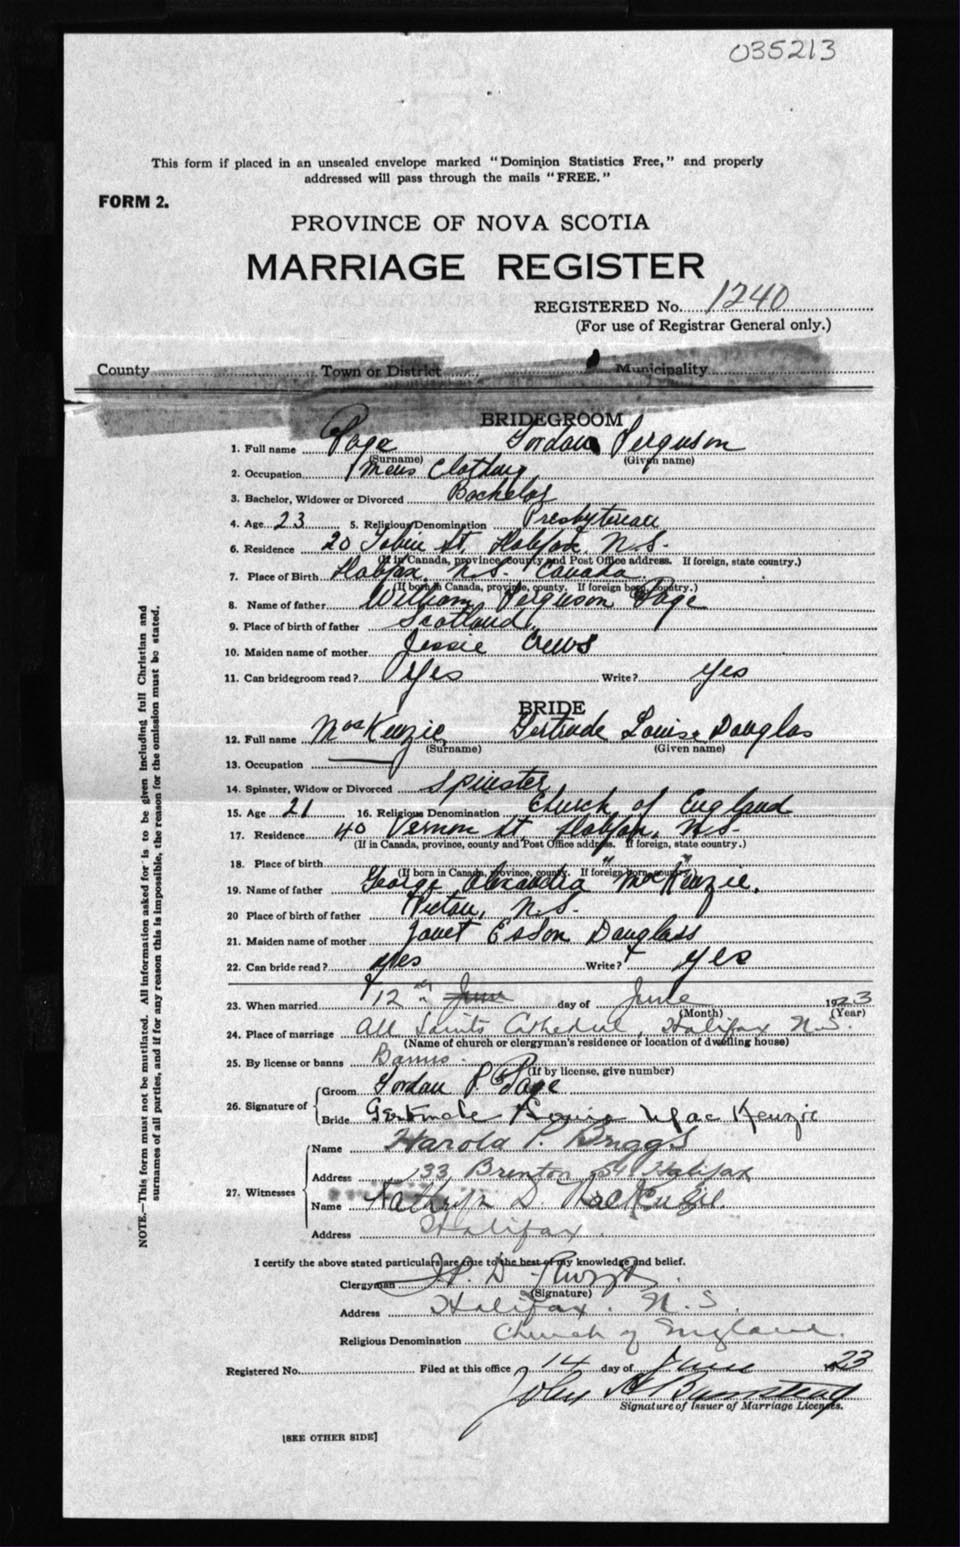 035213
This form if placed in an unsealed envelope marked "Dominion Statistics Free," and properly
addressed will pass through the mails "FREE."
FORM 2.
PROVINCE OF NOVA SCOTIA
MARRIAGE REGISTER
REGISTERED No. 1240
(For use of Registrar General only.)
County Town or District Municipality
BRIDEGROOM
1. Full name Page Gordon Ferguson
(Surname) (Given name)
2. Occupation Mens Clothing
3. Bachelor, Widower or Divorced Bachelor
4. Age 23 5. Religious Denomination Presbyterian
6. Residence 20 Tobin St. Halifax, N.S.
(If in Canada, province, county and Post Office address. If foreign, state country.)
7. Place of Birth Halifax, N.S. Canada
(If born in Canada, province, county. If foreign born, country.)
8. Name of father William Ferguson Page
9. Place of birth of father Scotland
10. Maiden name of mother Jessie Crews
11. Can bridegroom read? Yes Write? Yes
BRIDE
12. Full name MacKenzie Gertrude Louise Douglas
(Surname) (Given name)
13. Occupation
14. Spinster, Widow or Divorced Spinster
15. Age 21 16. Religious Denomination Church of England
17. Residence 40 Vernon St. Halifax, N.S.
(If in Canada, province, county and Post Office address. If foreign, state country.)
18. Place of birth " "
(If born in Canada, province, county. If foreign born, country.)
19. Name of father George Alexander MacKenzie.
20 Place of birth of father Pictou, N.S.
21. Maiden name of mother Janet Esson Douglass
22. Can bride read? Yes Write? Yes
23. When married 12th June day of June 1923
(Month) (Year)
24. Place of marriage All Saints Cathedral, Halifax N.S.
(Name of church or clergyman's residence or location of dwelling house)
25. By license or banns Banns.
(If by license, give number)
26. Signature of
Groom Gordon F. Page
Bride Gertrude Louise MacKenzie
27. Witnesses
Name Harold P. Briggs
Address 133 Brenton St Halifax
Name Kathryn D. MacKenzie.
Address Halifax.
I certify the above stated particulars are true to the best of my knowledge and belief.
Clergyman
(Signature)
Address Halifax. N.S.
Religious Denomination Church of England.
Registered No. Filed at this office 14 day of June 1923
John A Bumstead
Signature of Issuer of Marriage Licenses.
[SEE OTHER SIDE]
NOTE.—This form must not be mutilated. All information asked for is to be given including full Christian and
surnames of all parties, and if for any reason this is impossible, the reason for the omission must be stated.